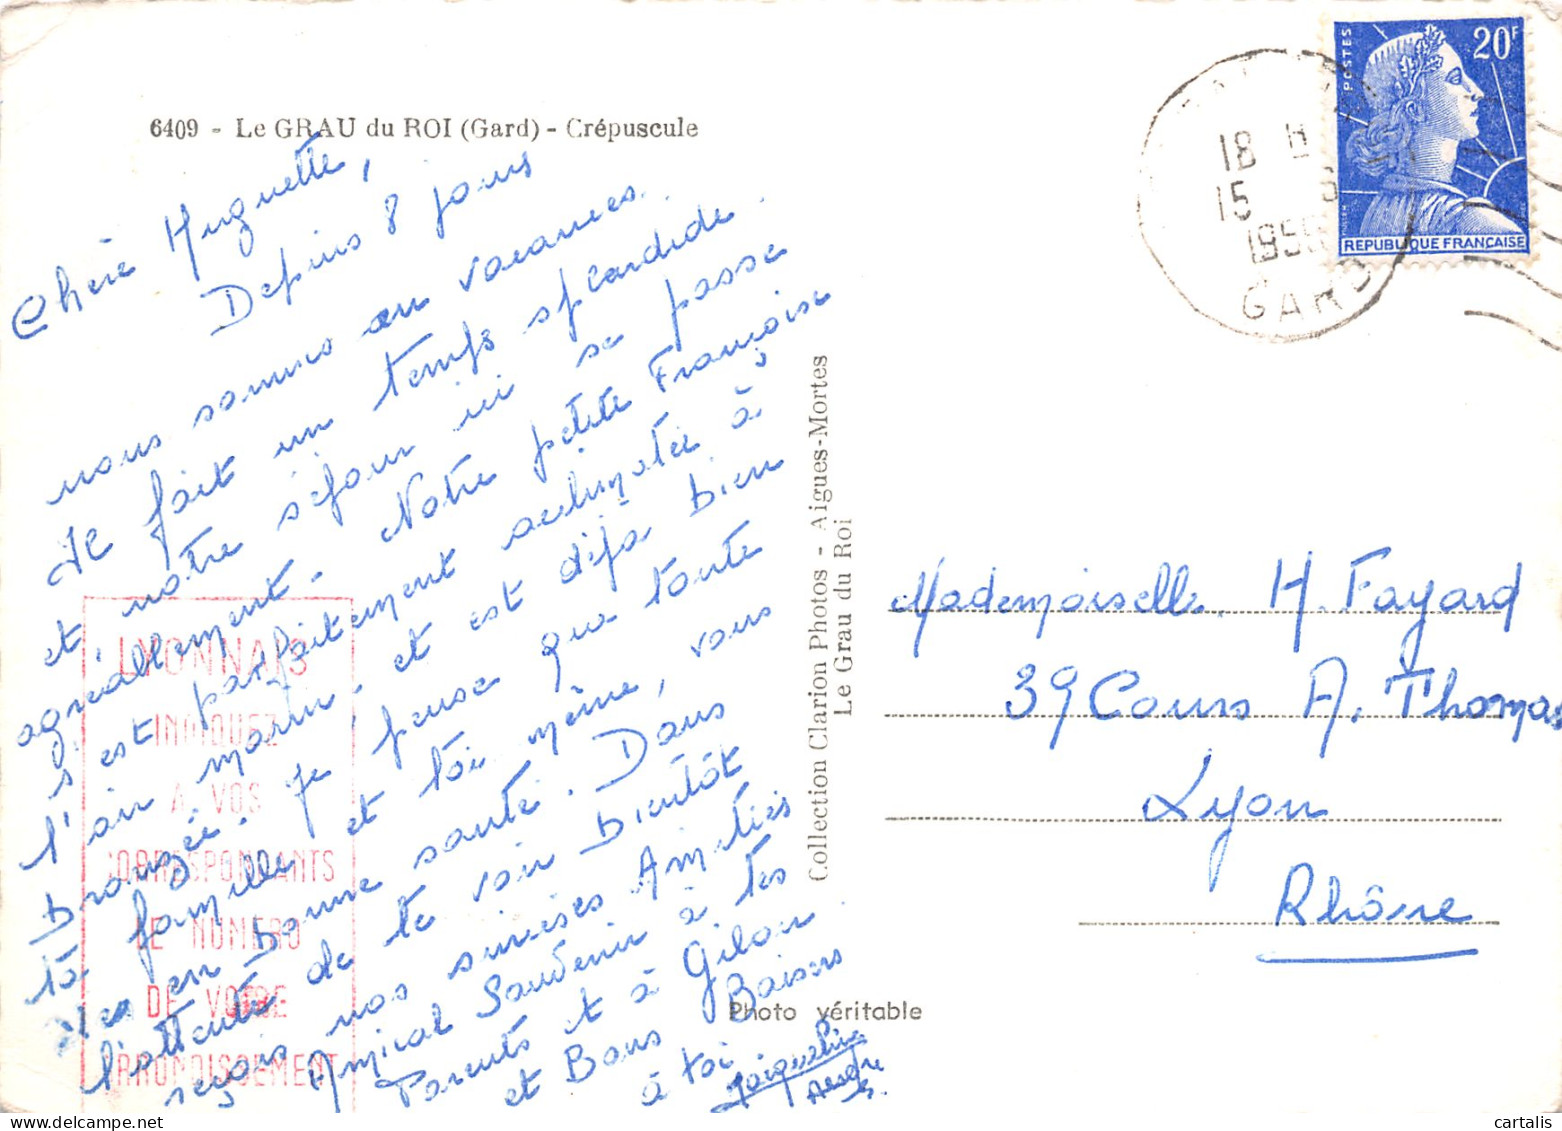 6409 - Le GRAU du ROI (Gard) - Crépuscule
Chère Huguette,
Depuis 8 jours
nous sommes en vacances.
Il fait un temps splendide.
et, notre séjour ici se passe
agréablement. Notre petite Françoise
s'est parfaitement aclimatée à
l'air marin. et est déjà bien
bronzée. je pense que toute
ta famille et toi même, vous
êtes en bonne santé. Dans
l'attente de te voir bientôt
reçois nos sincères Amitiés
Amical Souvenir à tes
Parents et à Gilou
et Bons Baisers
à toi
LYONNAIS
INDIQUEZ
A VOS
CORRESPONDANTS
LE NUMERO
DE VOTRE
ARRONDISSEMENT
Collection Clarion Photos - Aigues-Mortes
Le Grau du Roi
Photo véritable
18 H
15
GARD
POSTES
20F
REPUBLIQUE FRANÇAISE
Mademoiselle. H. Fayard
39 Cours A. Thomas
Lyon
Rhône
cartalis